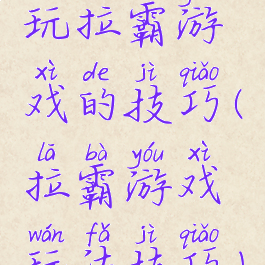 玩拉霸游
xì de jì qiǎo
戏的技巧(
lā bà yóu xì
拉霸游戏
wán fǎ jì qiǎo
玩法技巧)